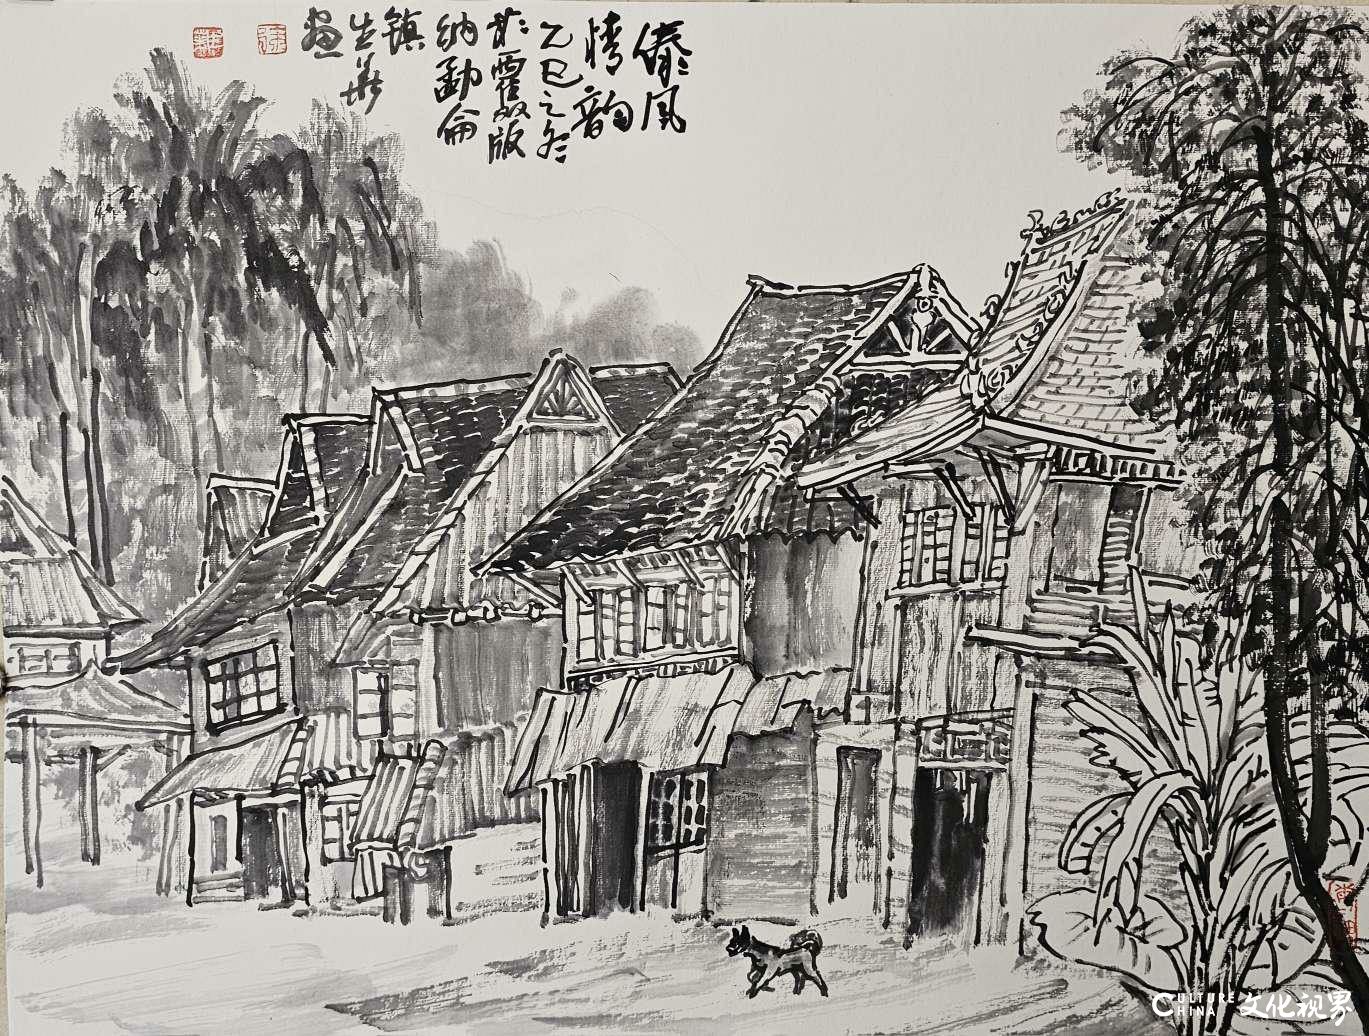 傣风
情韵
乙巳之冬
於西双版
纳勐侖
镇
生华
画
CULTURE
CHINA
文化视界